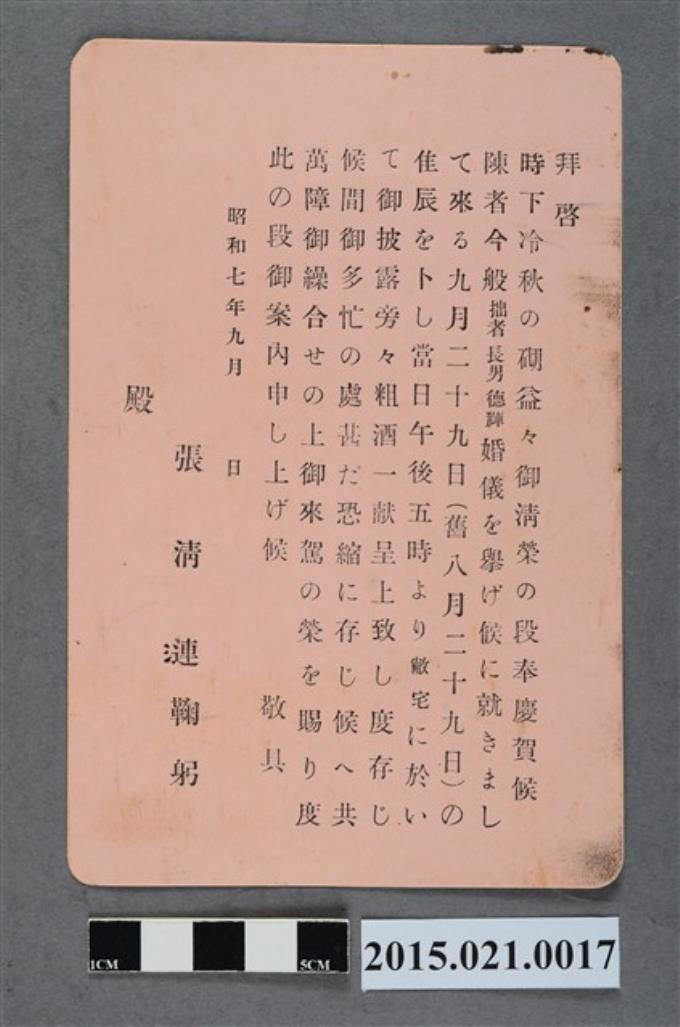 拜啓
時下冷秋の砌益々御淸榮の段奉慶賀候
陳者今般拙者長男德輝婚儀を擧げ候に就きまし
て來る九月二十九日(舊八月二十九日)の
佳辰を卜し當日午後五時より敝宅に於い
て御披露旁々粗酒一献呈上致し度存じ
候間御多忙の處甚だ恐縮に存じ候へ共
萬障御繰合せの上御來駕の榮を賜り度
此の段御案內申し上げ候 敬具
昭和七年九月 日
張淸漣鞠躬
殿
1CM
5CM
2015.021.0017